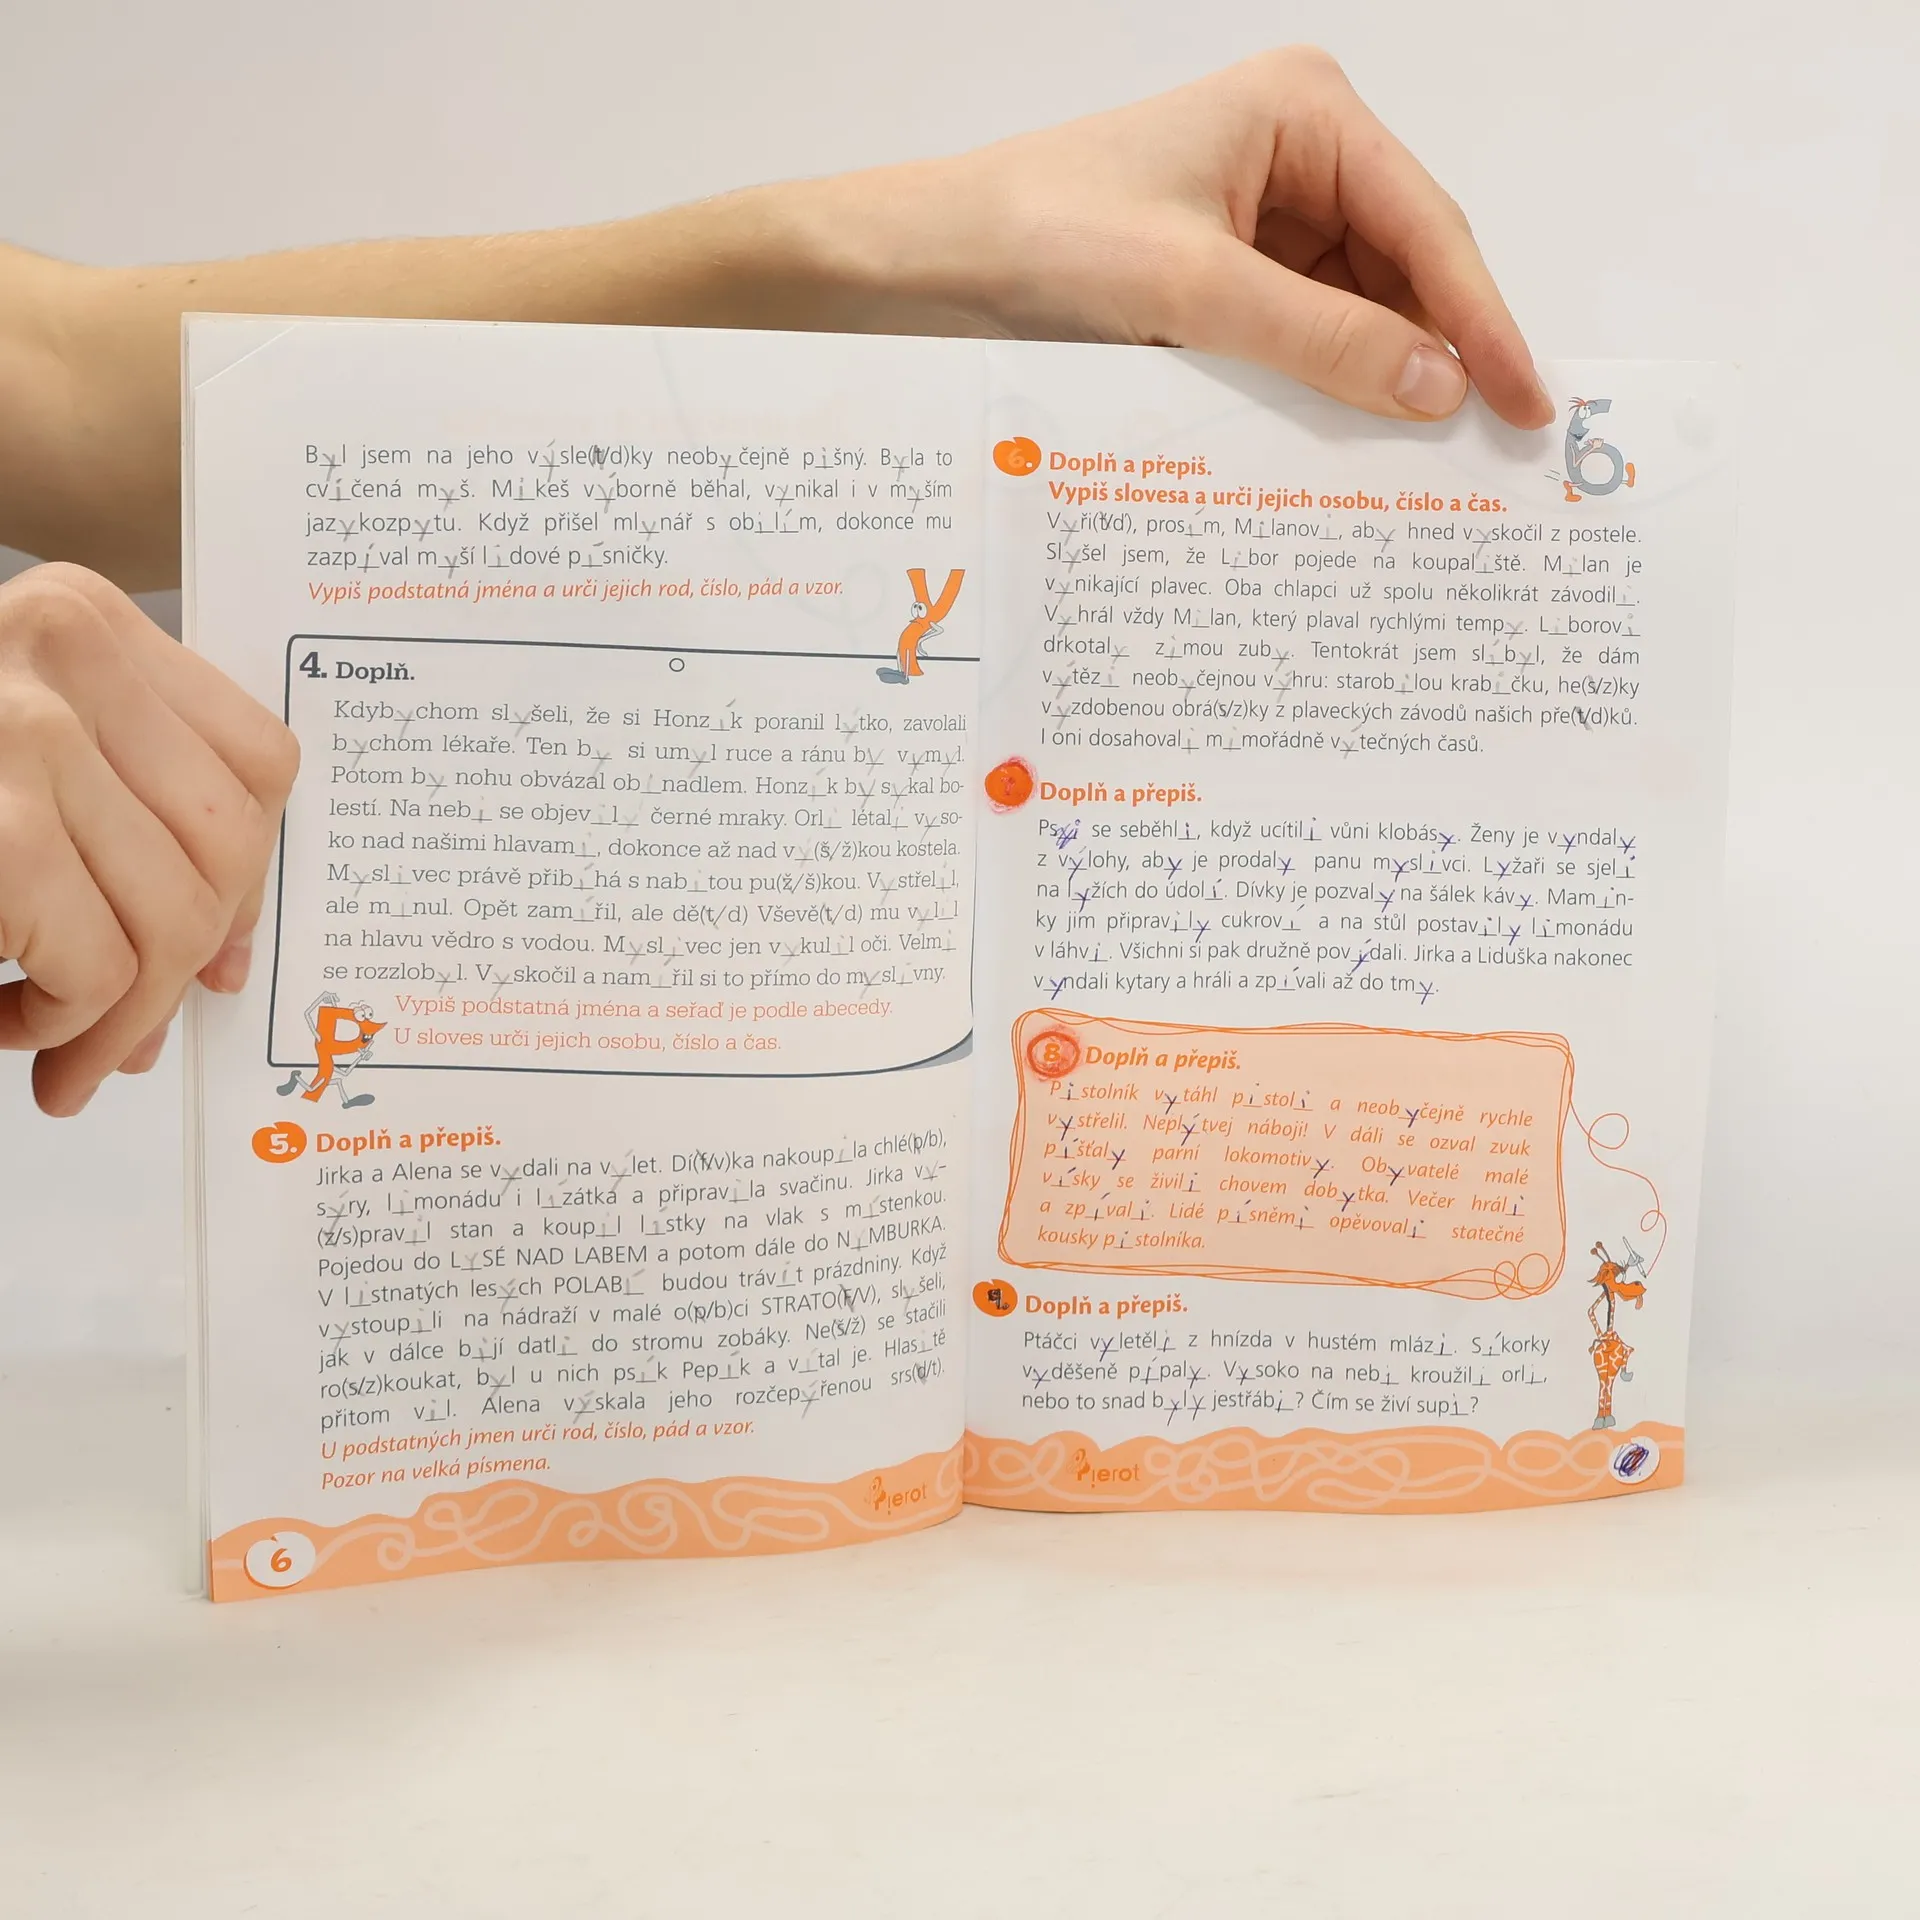 Byl jsem na jeho výsle(t/d)ky neobyčejně pišný. Byla to
cvičená myš. Mikeš výborně běhal, vynikal i v myším
jazykozpytu. Když přišel mlynář s obilím, dokonce mu
zazpíval myší lidové písničky.
Vypiš podstatná jména a urči jejich rod, číslo, pád a vzor.
4. Doplň.
Kdybychom slyšeli, že si Honzík poranil lýtko, zavolali
bychom lékaře. Ten by si umyl ruce a ránu by vymyl.
Potom by nohu obvázal obinadlem. Honzík by sykal bo-
lestí. Na nebi se objevily černé mraky. Orli létali vyso-
ko nad našimi hlavami, dokonce až nad vý(š/ž)kou kostela.
Myslivec právě přibíhá s nabitou pu(ž/š)kou. Vystřelil,
ale minul. Opět zamířil, ale dě(t/d) Vševě(t/d) mu vylil
na hlavu vědro s vodou. Myslivec jen vykulil oči. Velmi
se rozzlobyl. Vyskočil a namířil si to přímo do myslivny.
Vypiš podstatná jména a seřaď je podle abecedy.
U sloves urči jejich osobu, číslo a čas.
5. Doplň a přepiš.
Jirka a Alena se vydali na výlet. Dí(f/v)ka nakoupila chlé(p/b),
sýry, limonádu i lízátka a připravila svačinu. Jirka vy-
(z/s)pravil stan a koupil lístky na vlak s místenkou.
Pojedou do LYSÉ NAD LABEM a potom dále do NIMBURKA.
V listnatých lesých POLABÍ budou trávit prázdniny. Když
vystoupili na nádraží v malé o(p/b)ci STRATO(F/V), slyšeli,
jak v dálce bijí datli do stromu zobáky. Ne(š/ž) se stačili
ro(s/z)koukat, byl u nich psík Pepík a vítal je. Hlasitě
přitom vil. Alena výskala jeho rozčepýřenou srs(ď/t).
U podstatných jmen urči rod, číslo, pád a vzor.
Pozor na velká písmena.
Pierot
6
6. Doplň a přepiš.
Vypiš slovesa a urči jejich osobu, číslo a čas.
Vyři(ť/ď), prosím, Milanovi, aby hned vyskočil z postele.
Slyšel jsem, že Libor pojede na koupaliště. Milan je
vynikající plavec. Oba chlapci už spolu několikrát závodili.
Vyhrál vždy Milan, který plaval rychlými tempy. Liborovi
drkotaly zimou zuby. Tentokrát jsem slíbyl, že dám
vítězi neobyčejnou výhru: starobilou krabičku, he(s/z)ky
vyzdobenou obrá(s/z)ky z plaveckých závodů našich pře(t/d)ků.
I oni dosahovali mimořádně výtečných časů.
Doplň a přepiš.
Psi se seběhli, když ucítili vůni klobásy. Ženy je vyndaly
z výlohy, aby je prodaly panu myslivci. Lyžaři se sjeli
na lyžích do údolí. Dívky je pozvaly na šálek kávy. Mamin-
ky jim připravily cukroví a na stůl postavily limonádu
v láhvi. Všichni si pak družně povídali. Jirka a Liduška nakonec
vyndali kytary a hráli a zpívali až do tmy.
8. Doplň a přepiš.
Pistolník vytáhl pistoli a neobyčejně rychle
vystřelil. Neplýtvej náboji! V dáli se ozval zvuk
píšťaly parní lokomotivy. Obyvatelé malé
vísky se živili chovem dobytka. Večer hráli
a zpívali. Lidé písněmi opěvovali statečné
kousky pistolníka.
9. Doplň a přepiš.
Ptáčci vyletěli z hnízda v hustém mlází. Síkorky
vyděšeně pípaly. Vysoko na nebi kroužili orli,
nebo to snad byly jestřábi? Čím se živí supi?
Pierot